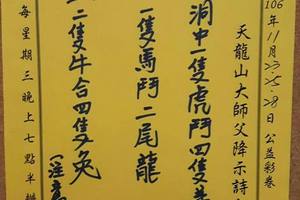 106年11月23.25.28日公益彩卷
天龍山大師父降示詩
洞中一隻虎鬥四隻
一隻馬鬥二尾龍
二隻牛合四隻兔
每星期三晚上七點半